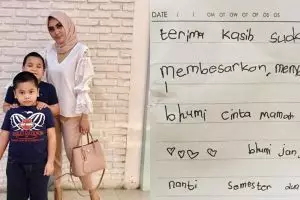 DATE
terima kasih suda
membesarkan, mem
bhumi cinta mamah
♡♡♡♡ bhumi jan
nanti semester dua